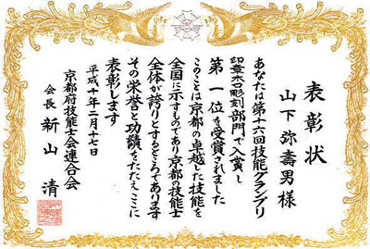 表彰状
山下弥壽男様
あなたは第十六回技能グランプリ
印章木口彫刻部門で入賞し
第一位を受賞されました
このことは京都の卓越した技能を
全国に示すものであり京都の技能士
全体が誇りとするところであります
その栄誉と功績をたたえここに
表彰します
平成十年二月十七日
京都府技能士会連合会
会長 新山清